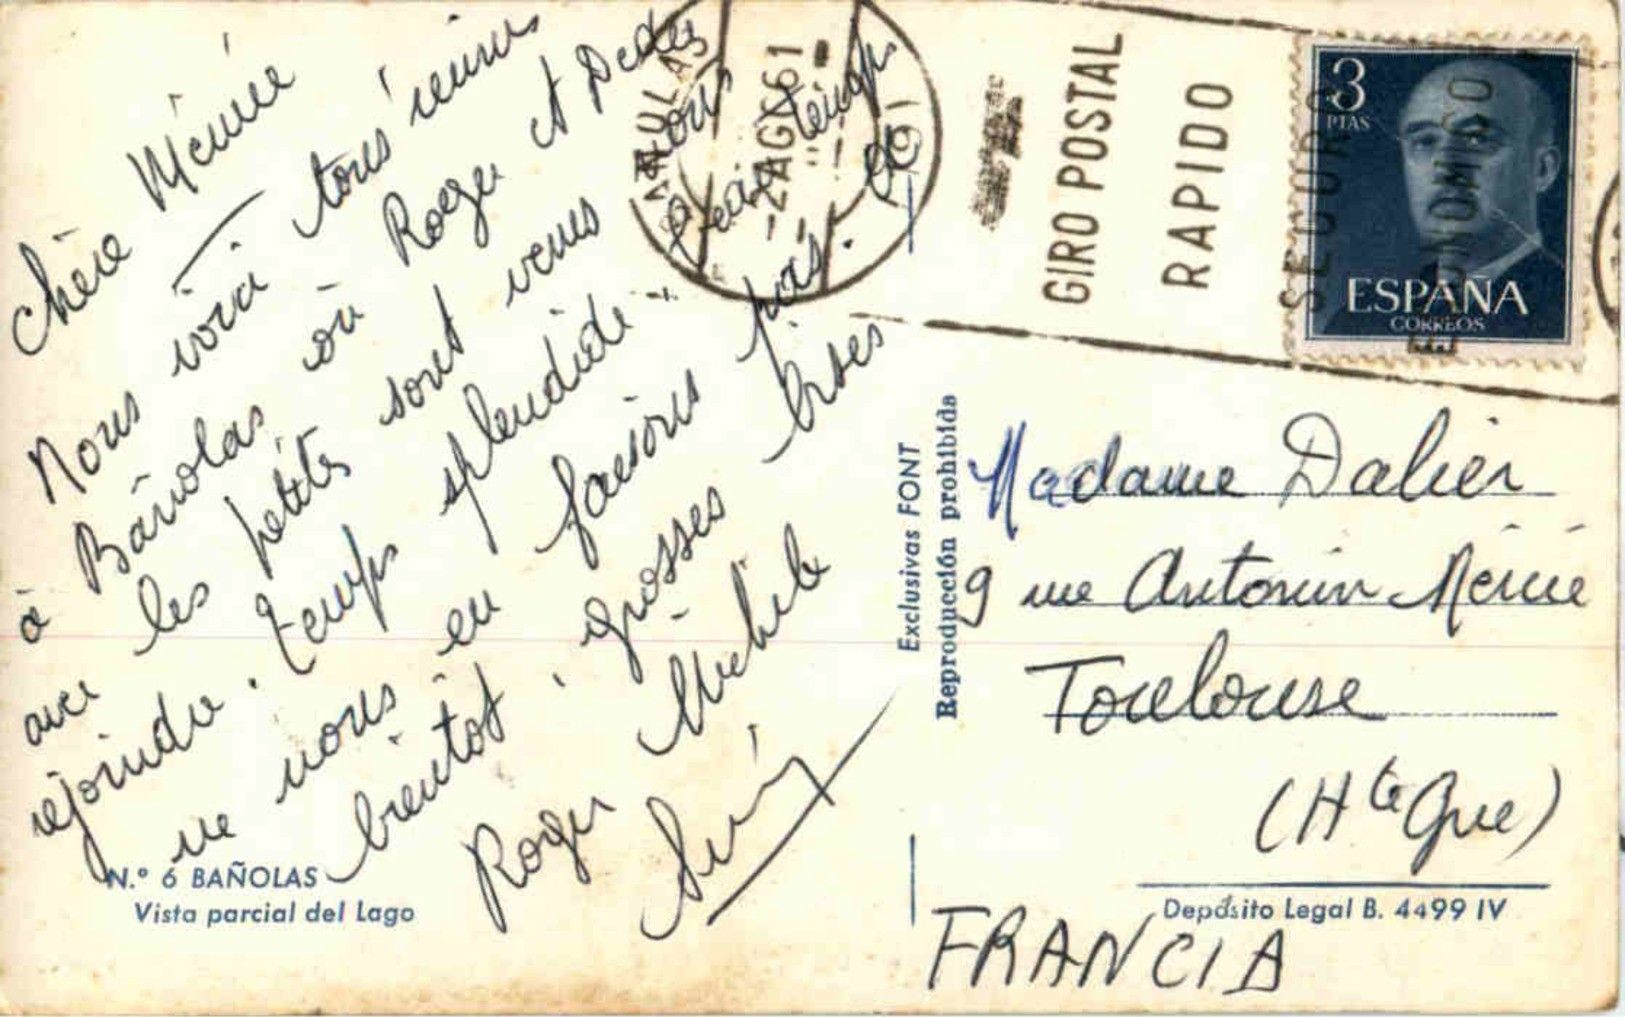 Chère Mémée
Nous voici tous réunis
à Bañolas où Roger et Dedée
avec les petites sont venus nous
rejoindre. Temps splendide - Beau temps
ne nous en faisons pas. Et
bientôt, grosses bises
Roger Michele
N.º 6 BAÑOLAS
Vista parcial del Lago
Exclusivas FONT
Reproducción prohibida
-2AGO61
GIRO POSTAL
RAPIDO
SEGURO
ECONOMICO
3
PTAS
ESPAÑA
CORREOS
Madame Dalier
9 rue Antonin Mercié
Toulouse
(Hte Gne)
FRANCIA
Depósito Legal B. 4499 IV